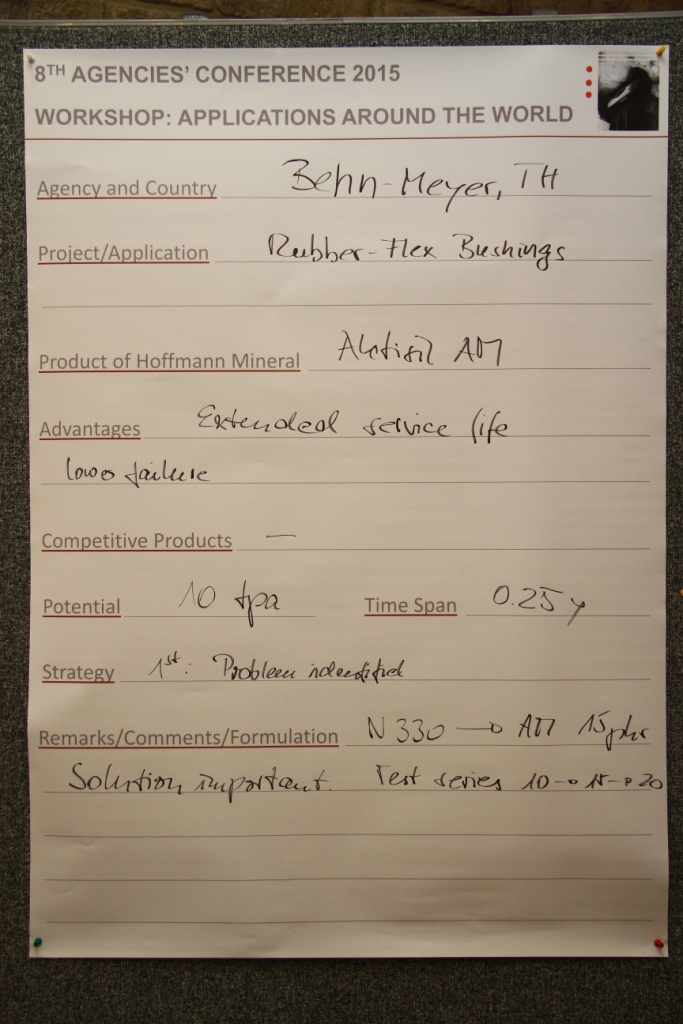 8TH AGENCIES' CONFERENCE 2015
WORKSHOP: APPLICATIONS AROUND THE WORLD
Agency and Country Behn-Meyer, TH
Project/Application Rubber-Flex Bushings
Product of Hoffmann Mineral Aktisil AM
Advantages Extended service life
low failure
Competitive Products —
Potential 10 tpa Time Span 0.25 y
Strategy 1st: Problem indentified
Remarks/Comments/Formulation N 330 → AM 15 phr
Solution important. Test series 10 → 15 → 20